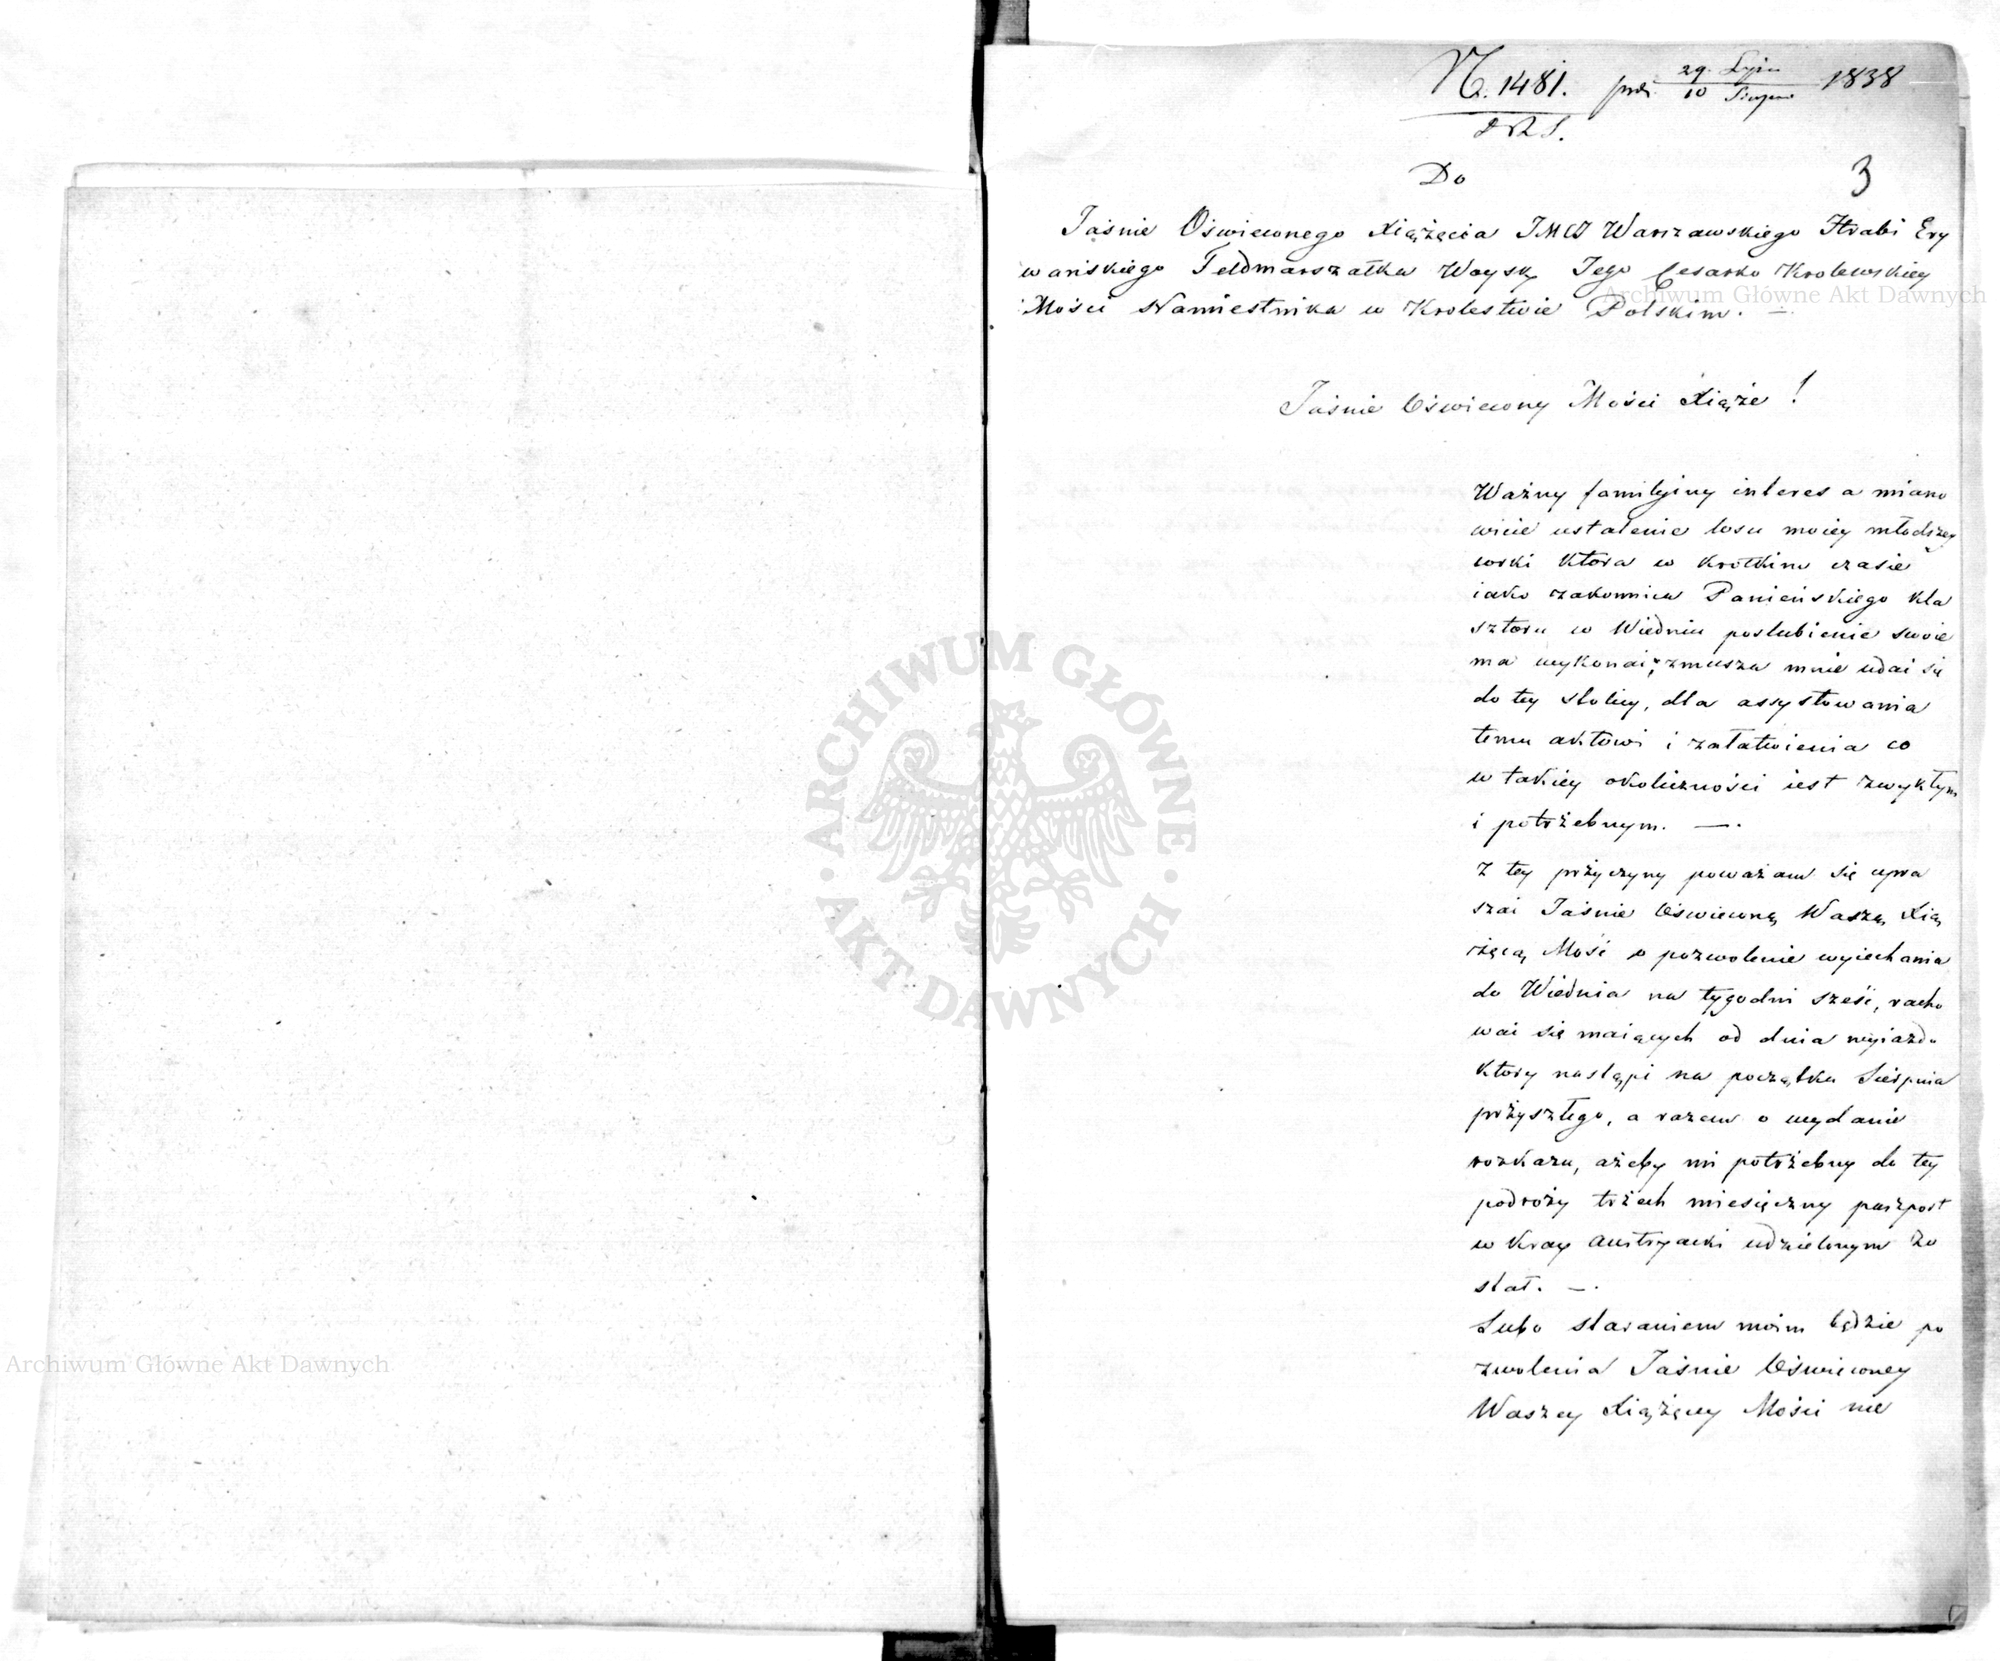 N. 1481. prdz. 29. Lipca / 10 Sierpnia 1838
Do
3
Jaśnie Oświeconego Xiążęcia JMCI Warszawskiego Hrabi Ery
wańskiego Feldmarszałka Woysk Jego Cesarko Krolewskiey
Mości Namiestnika w Krolestwie Polskim. —
Jaśnie Oświecony Mości Xiąże!
Ważny familyiny interes a miano
wicie ustalenie losu moiey młodszey
corki ktora w krotkim czasie
iako zakonnica Panieńskiego kla
sztoru w Wiedniu poslubienie swoie
ma wykonać; zmusza mnie udać się
do tey stolicy, dla assystowania
temu aktowi i załatwienia co
w takiey okoliczności iest zwykłym
i potrżebnym. —.
Z tey prżyczyny poważam się upra
szać Jaśnie Oświeconą Waszą Xią
żęcą Mość o pozwolenie wyiechania
do Wiednia na tygodni sześć, racho
wać się maiących od dnia wyiazdu
ktory nastąpi na początku Sierpnia
prżyszłego, a razem o wydanie
rozkazu, ażeby mi potrżebny do tey
podroży trżech miesięczny paszport
w kray austryacki udzielonym zo
stał. —.
Lubo staraniem moim będzie po
zwolenia Jaśnie Oświeconey
Waszey Xiążęcey Mości nie
Archiwum Główne Akt Dawnych
Archiwum Główne Akt Dawnych
ARCHIWUM GŁÓWNE · AKT DAWNYCH ·